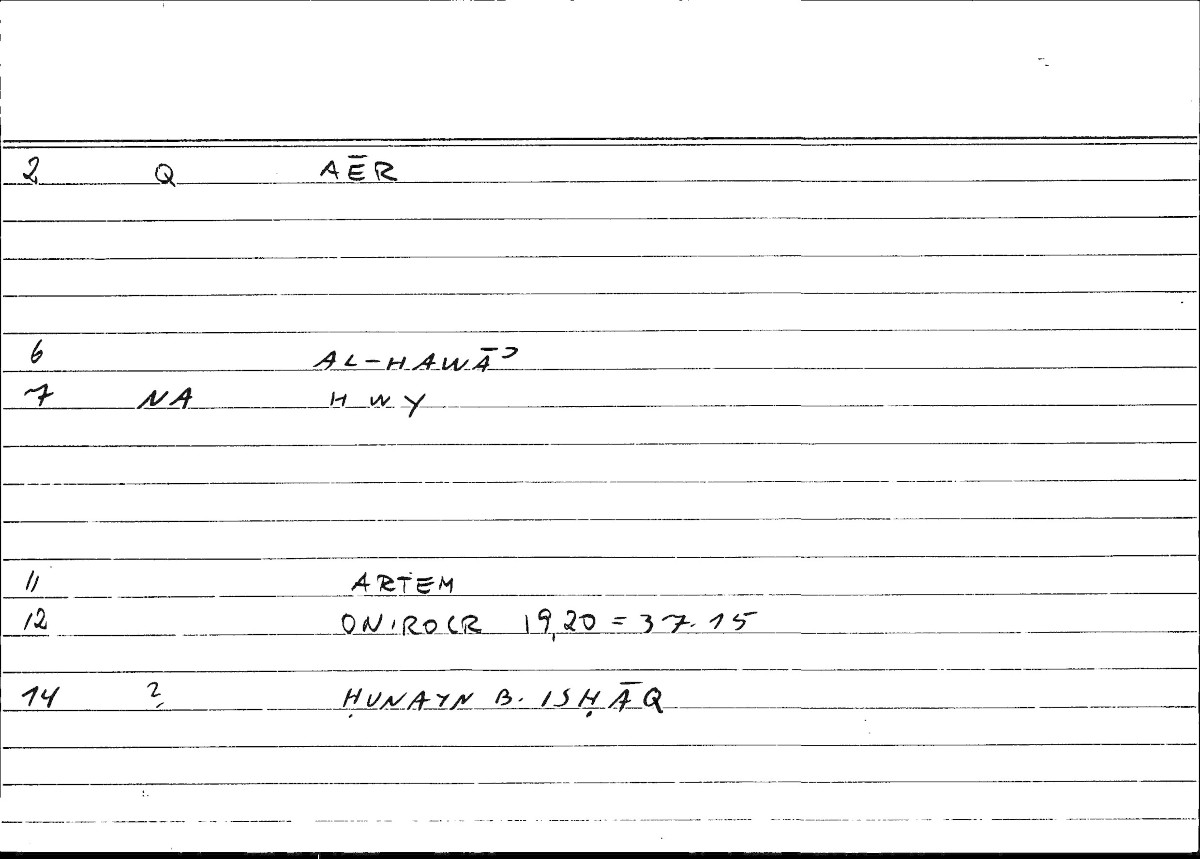 2 Q AĒR
6 AL-HAWĀʾ
7 NA HWY
11 ARTEM
12 ONIROCR 19,20 = 37.15
14 ? ḤUNAYN B. ISḤĀQ